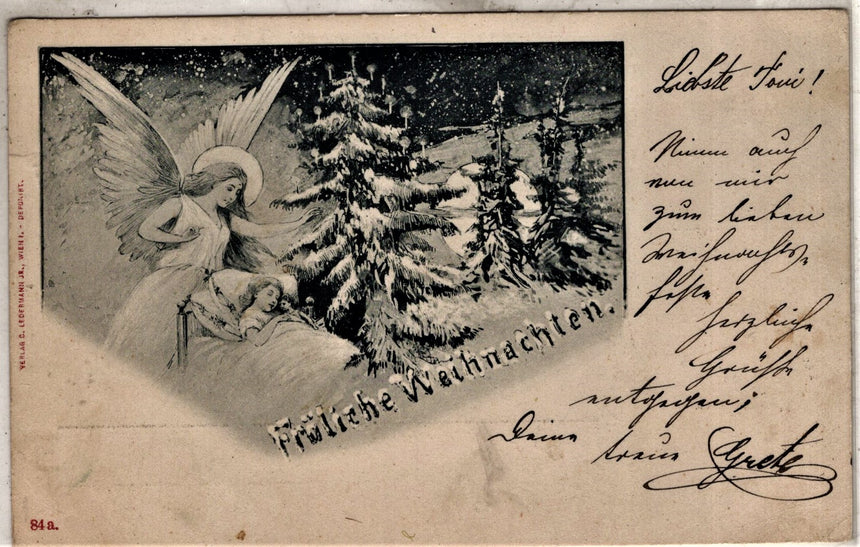 Liebste Toni!
Nimm auch
von mir
zum lieben
Weihnachts-
feste
herzliche
Grüße
entgegen;
Deine
treue Grete
Fröliche Weihnachten.
VERLAG C. LEDERMANN JR., WIEN I. - DEPONIRT.
84a.